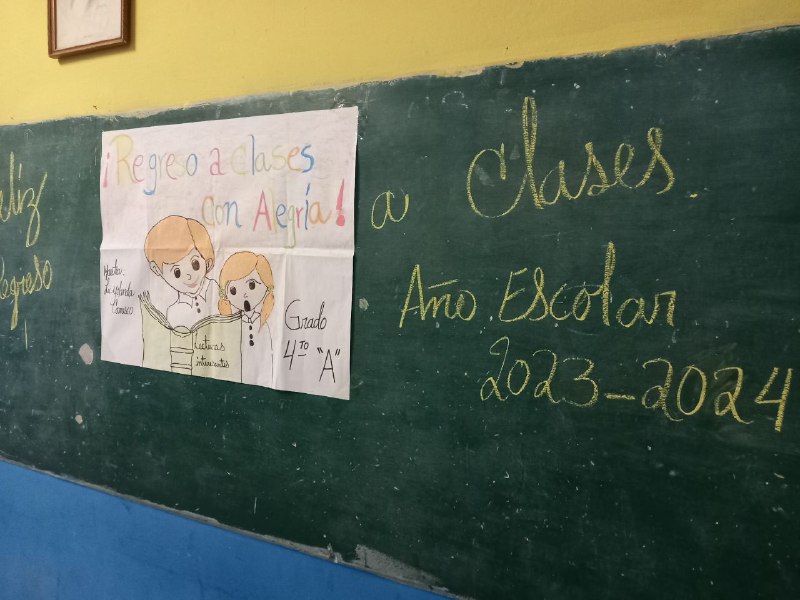 eliz
Regreso
¡Regreso a clases
con Alegría!
Lecturas
interesantes
Grado
4to "A"
a Clases.
Año Escolar
2023-2024